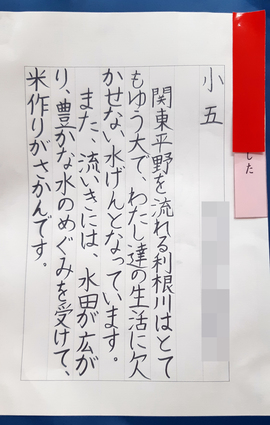 小五
関東平野を流れる利根川はとて
もゆう大で、わたし達の生活に欠
かせない水げんとなっています。
また、流いきには、水田が広が
り、豊かな水のめぐみを受けて、
米作りがさかんです。
した